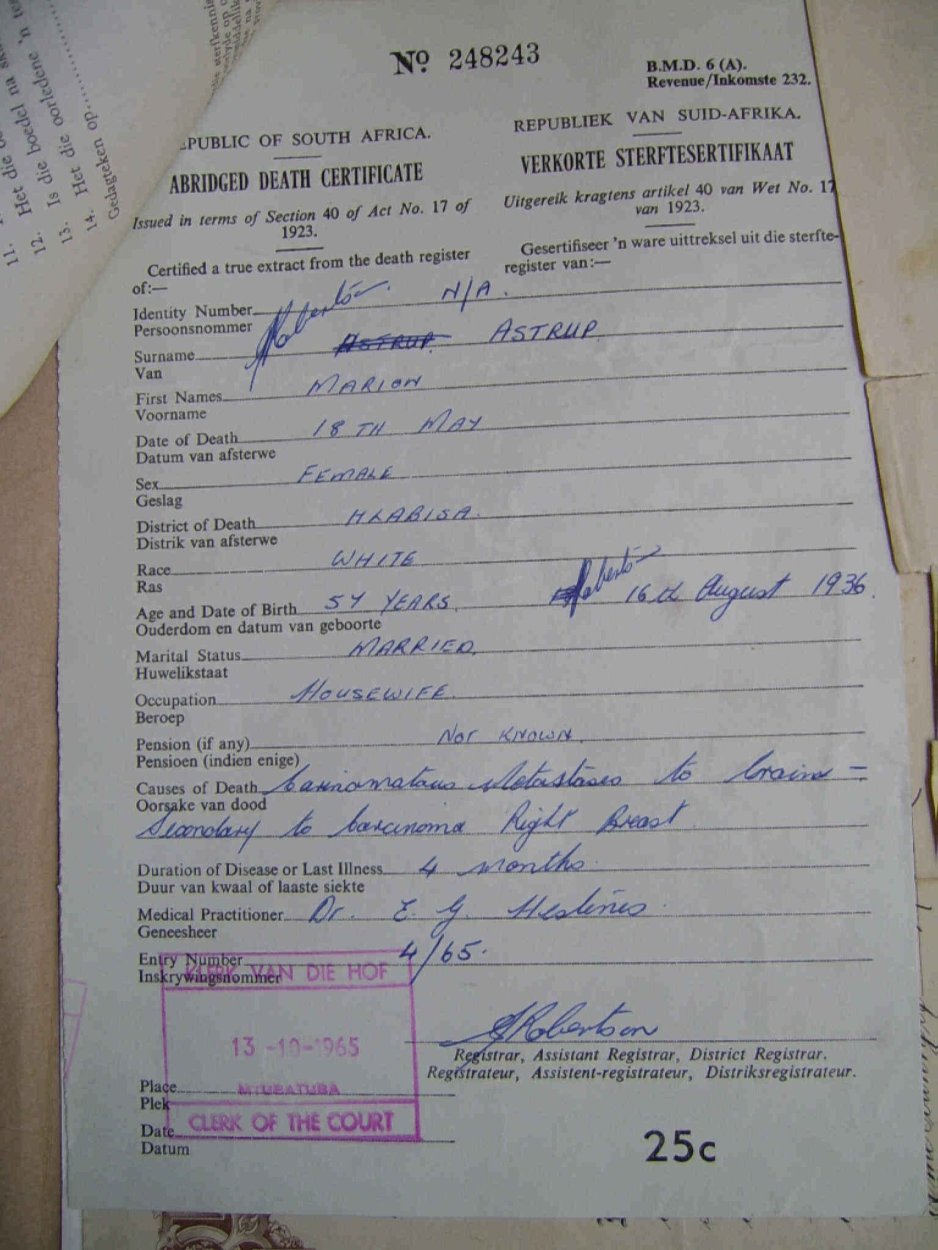 11. Het die
12. Is die boedel na
13. Is die oorledene 'n
14. Het die
Gedagteken op
Nº 248243
B.M.D. 6 (A).
Revenue/Inkomste 232.
EPUBLIC OF SOUTH AFRICA.
REPUBLIEK VAN SUID-AFRIKA.
ABRIDGED DEATH CERTIFICATE
VERKORTE STERFTESERTIFIKAAT
Issued in terms of Section 40 of Act No. 17 of
1923.
Uitgereik kragtens artikel 40 van Wet No. 17
van 1923.
Certified a true extract from the death register
of:—
Gesertifiseer 'n ware uittreksel uit die sterfte-
register van:—
Identity Number N/A.
Persoonsnommer
Robertson
Surname ASTRUP. ASTRUP.
Van
First Names MARION
Voorname
Date of Death 18TH MAY
Datum van afsterwe
Sex FEMALE
Geslag
District of Death HLABISA.
Distrik van afsterwe
Race WHITE
Ras
Age and Date of Birth 54 YEARS. Robertson 16th August 1936.
Ouderdom en datum van geboorte
Marital Status MARRIED.
Huwelikstaat
Occupation HOUSEWIFE.
Beroep
Pension (if any) NOT KNOWN.
Pensioen (indien enige)
Causes of Death Carinomatous Metastases to brain –
Oorsake van dood
Secondary to Carcinoma Right Breast
Duration of Disease or Last Illness 4 months.
Duur van kwaal of laaste siekte
Medical Practitioner Dr. E. G.
Geneesheer
Entry Number 4/65.
Inskrywingsnommer
KLERK VAN DIE HOF
13 -10-1965
MTUBATUBA
CLERK OF THE COURT
Robertson
Registrar, Assistant Registrar, District Registrar.
Registrateur, Assistent-registrateur, Distriksregistrateur.
Place
Plek
Date
Datum
25c